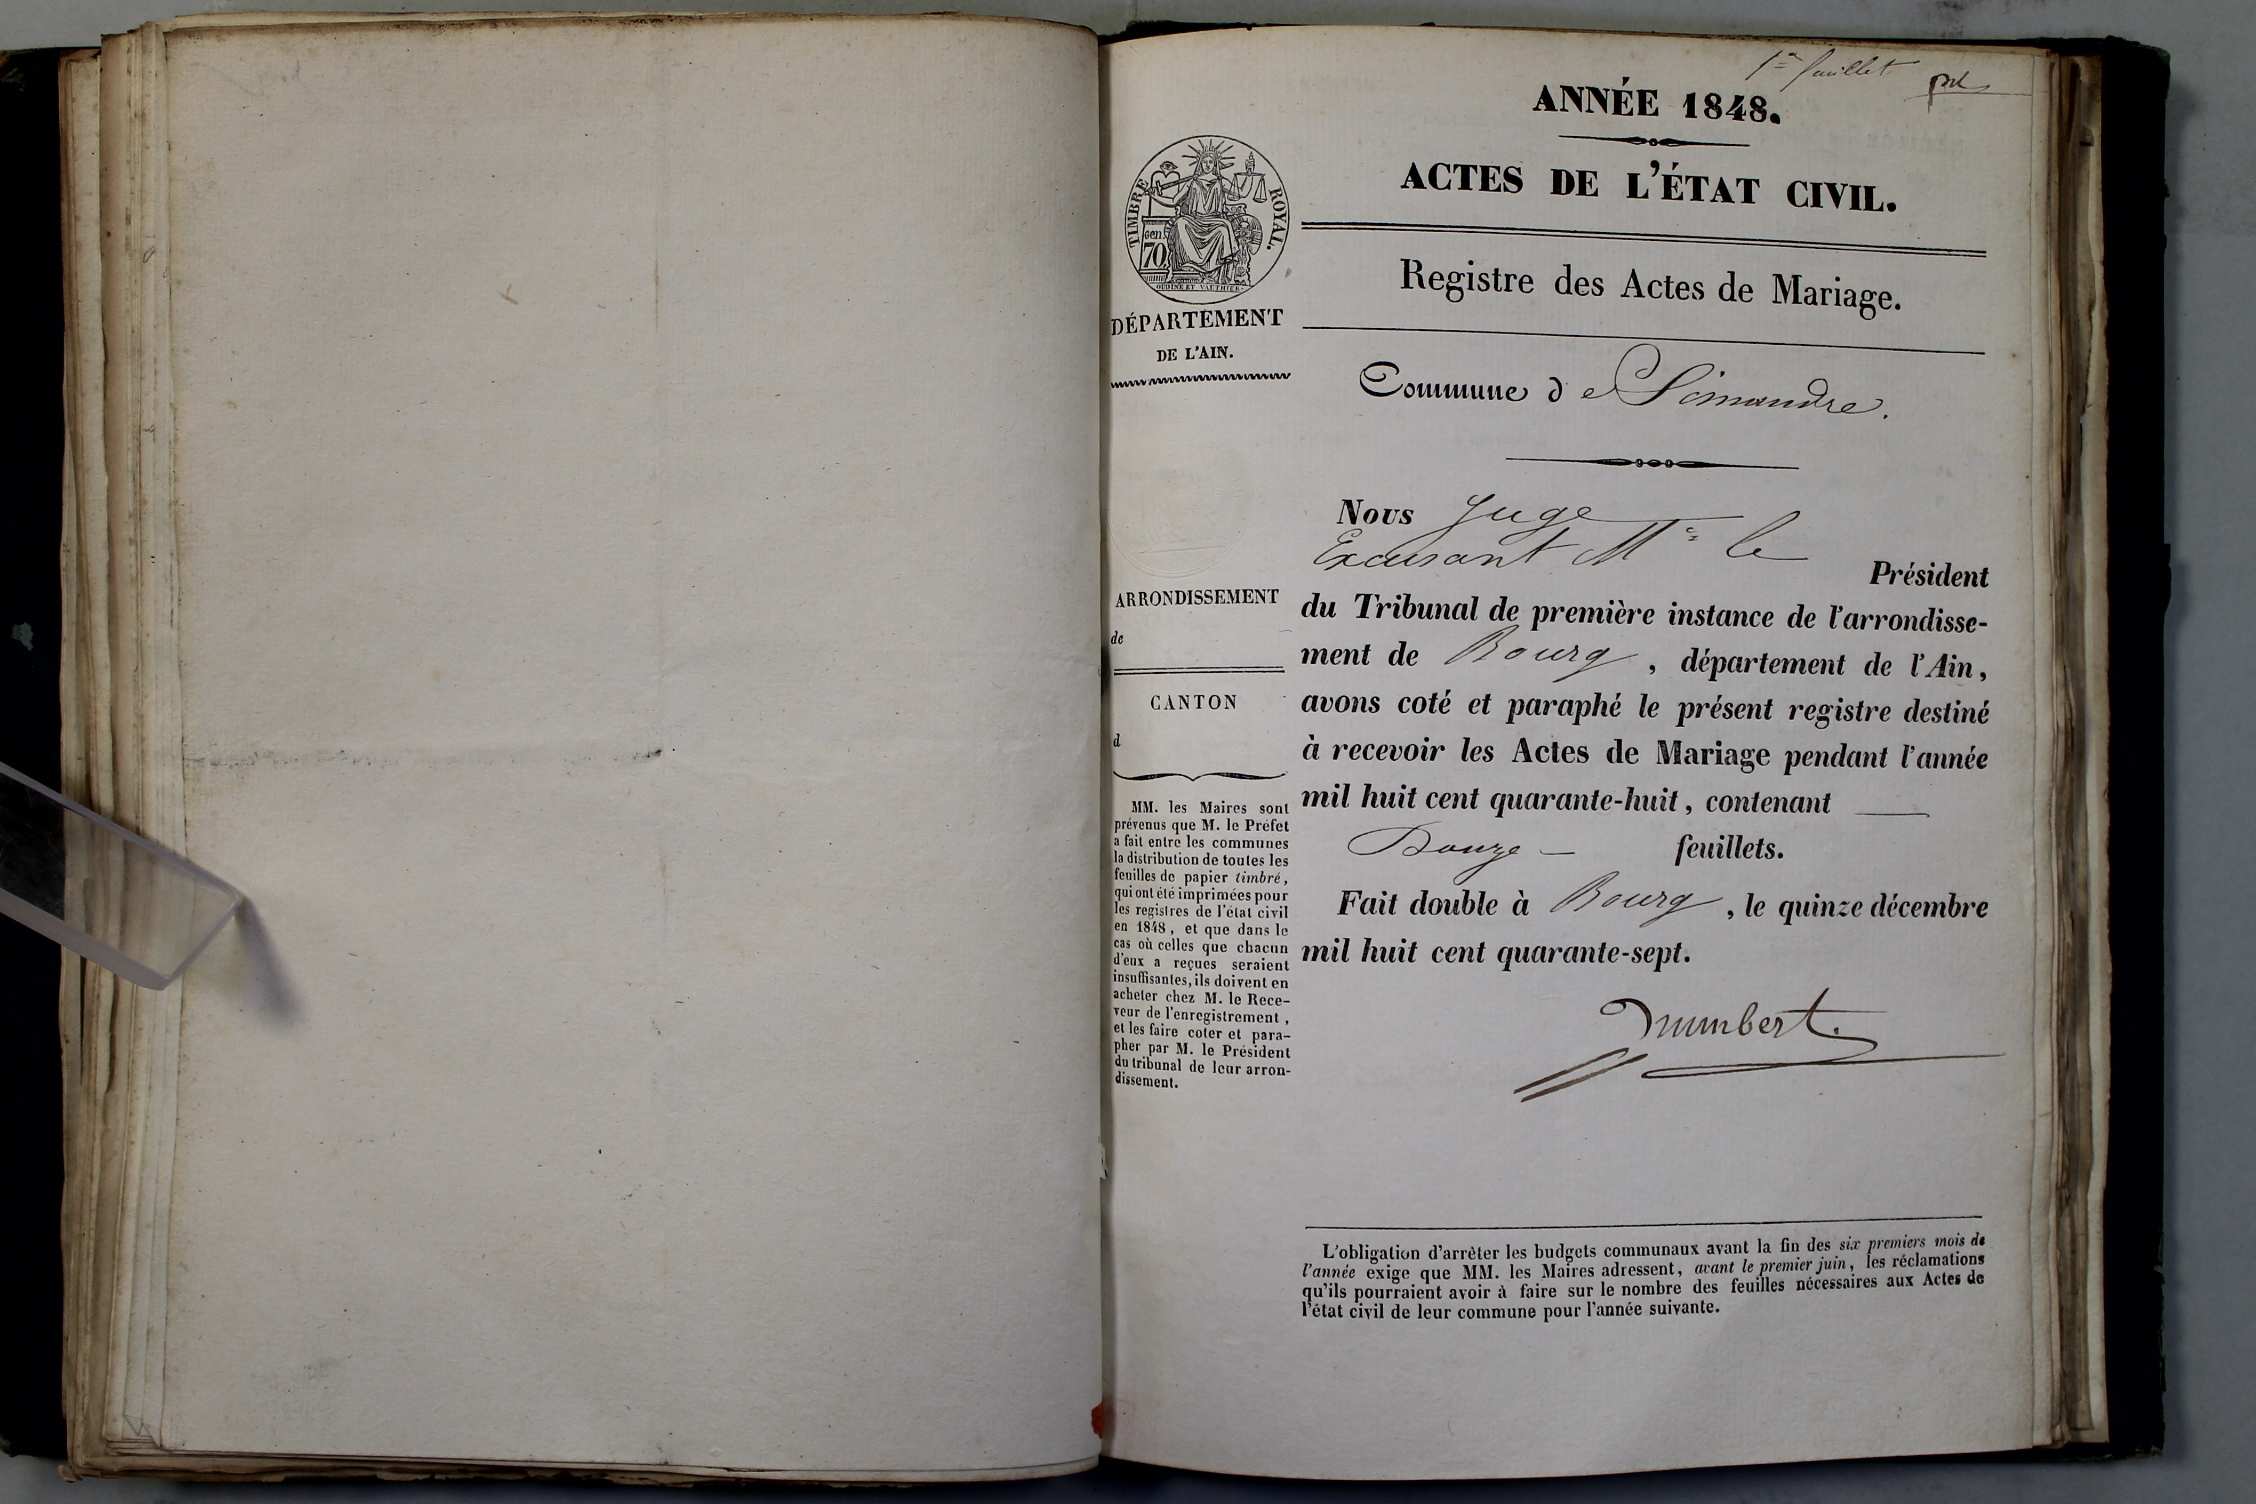 1er feuillet
ANNÉE 1848.
ACTES DE L'ÉTAT CIVIL.
TIMBRE ROYAL.
cen.
70
OUDINÉ ET VAUTHIER.
Registre des Actes de Mariage.
DÉPARTEMENT
DE L'AIN.
Commune de Simandre.
Nous Juge
Excusant Mr le
Président
du Tribunal de première instance de l'arrondisse-
ment de Bourg, département de l'Ain,
avons coté et paraphé le présent registre destiné
à recevoir les Actes de Mariage pendant l'année
mil huit cent quarante-huit, contenant
Douze feuillets.
Fait double à Bourg, le quinze décembre
mil huit cent quarante-sept.
humbert.
ARRONDISSEMENT
de
CANTON
d
MM. les Maires sont
prévenus que M. le Préfet
a fait entre les communes
la distribution de toutes les
feuilles de papier timbré,
qui ont été imprimées pour
les registres de l'état civil
en 1848, et que dans le
cas où celles que chacun
d'eux a reçues seraient
insuffisantes, ils doivent en
acheter chez M. le Rece-
veur de l'enregistrement,
et les faire coter et para-
pher par M. le Président
du tribunal de leur arron-
dissement.
L'obligation d'arrêter les budgets communaux avant la fin des six premiers mois de
l'année exige que MM. les Maires adressent, avant le premier juin, les réclamations
qu'ils pourraient avoir à faire sur le nombre des feuilles nécessaires aux Actes de
l'état civil de leur commune pour l'année suivante.